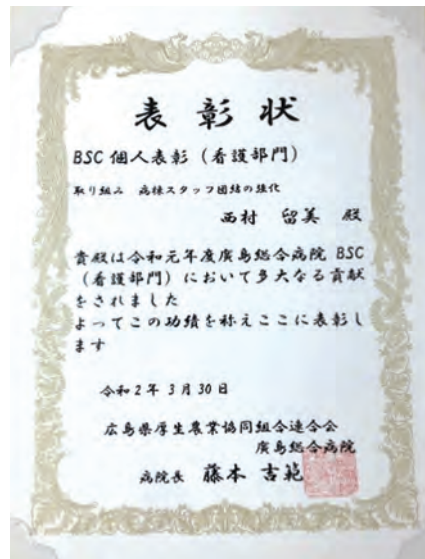 表彰状
BSC 個人表彰（看護部門）
取り組み 病棟スタッフ団結の強化
西村 留美 殿
貴殿は令和元年度廣島総合病院 BSC
（看護部門）において多大なる貢献
をされました
よってこの功績を称えここに表彰し
ます
令和2年3月30日
広島県厚生農業協同組合連合会
廣島総合病院
病院長 藤本 吉範